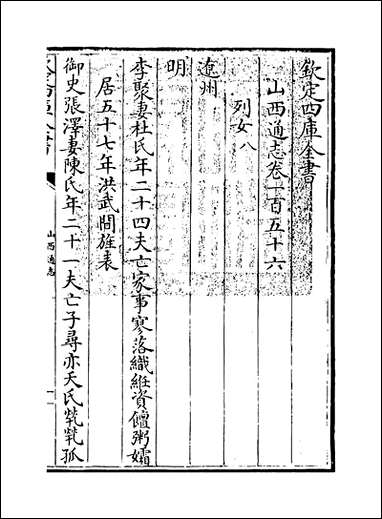 欽定四庫全書
山西通志卷一百五十六
列女八
遼州
明
李聚妻杜氏年二十四夫亡家事寥落織維資饘粥孀
居五十七年洪武間旌表
御史張澤妻陳氏年二十一夫亡子尋亦夭氏煢煢孤
山西通志